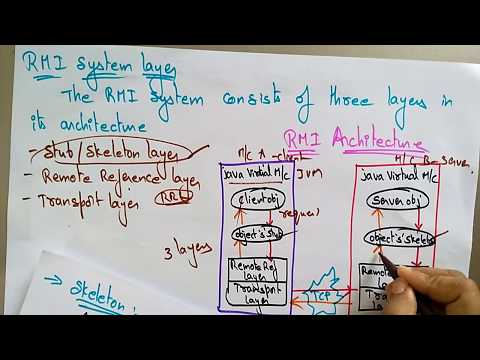 RMI System layer
The RMI System consists of three layers in
its architecture
- Stub/Skeleton layer
- Remote Reference layer
- Transport layer
RRL
3 layers
RMI Architecture
M/C A - client
Java Virtual M/c
JVM
client obj
request
object's stub
Remote Ref
layer
Transport
layer
TCP
M/C B - Server
Java Virtual M/c
server obj
object's skeleton
→ Skeleton